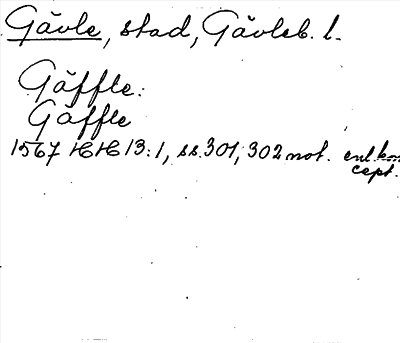 Gävle, stad, Gävleb. l.
Gäffle:
Gäffle
1567 HH 13:1, ss. 301, 302 not. enl. kon
cept.